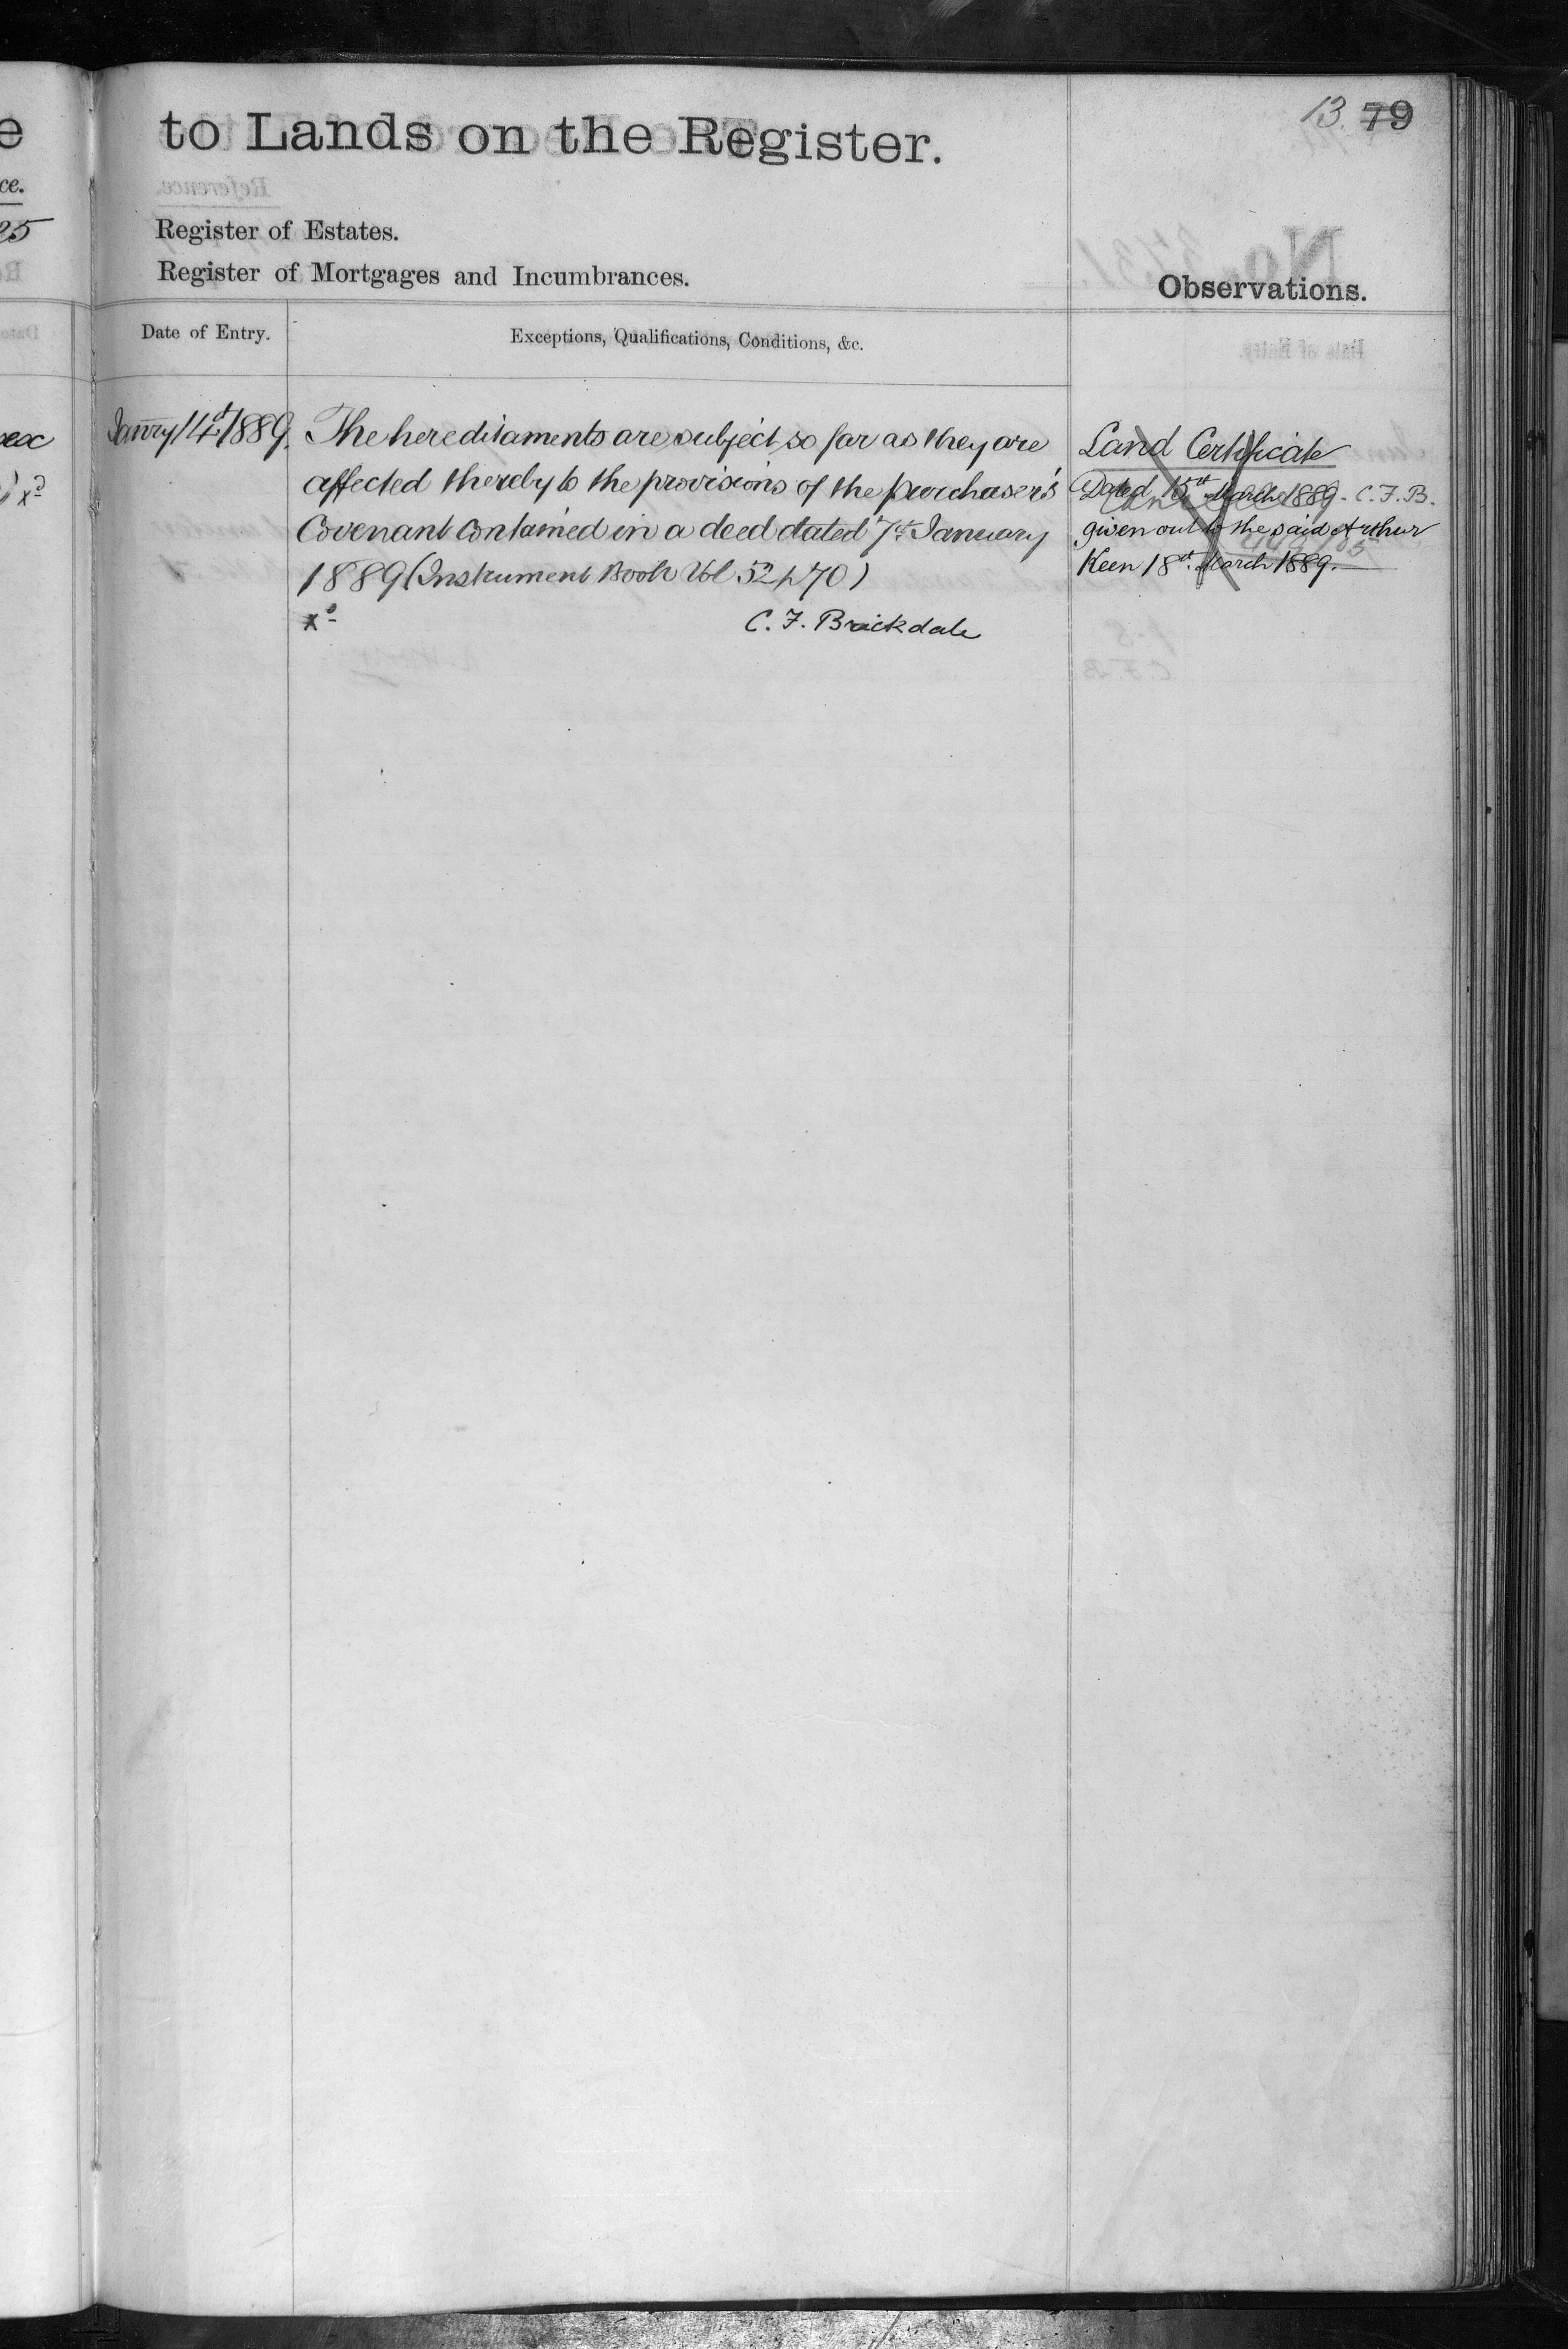 13. 79
to Lands on the Register.
Register of Estates.
Register of Mortgages and Incumbrances.
Observations.
Date of Entry.
Exceptions, Qualifications, Conditions, &c.
Janry 14th 1889.
The hereditaments are subject so far as they are
affected thereby to the provisions of the purchaser's
Covenant contained in a deed dated 7th January
1889 (Instrument Book Vol 52 p 70)
xd
C. F. Brickdale
Land Certificate
Dated 15th March 1889 - C. F. B.
Cancelled
given out to the said Arthur
Keen 18th March 1889.